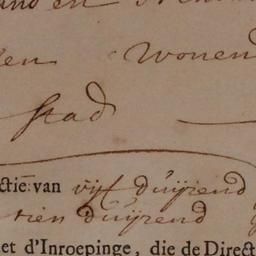 en wonen
stad
ctie van vijf duijzend
tien duijzend
et d'Inroepinge, die de Direct